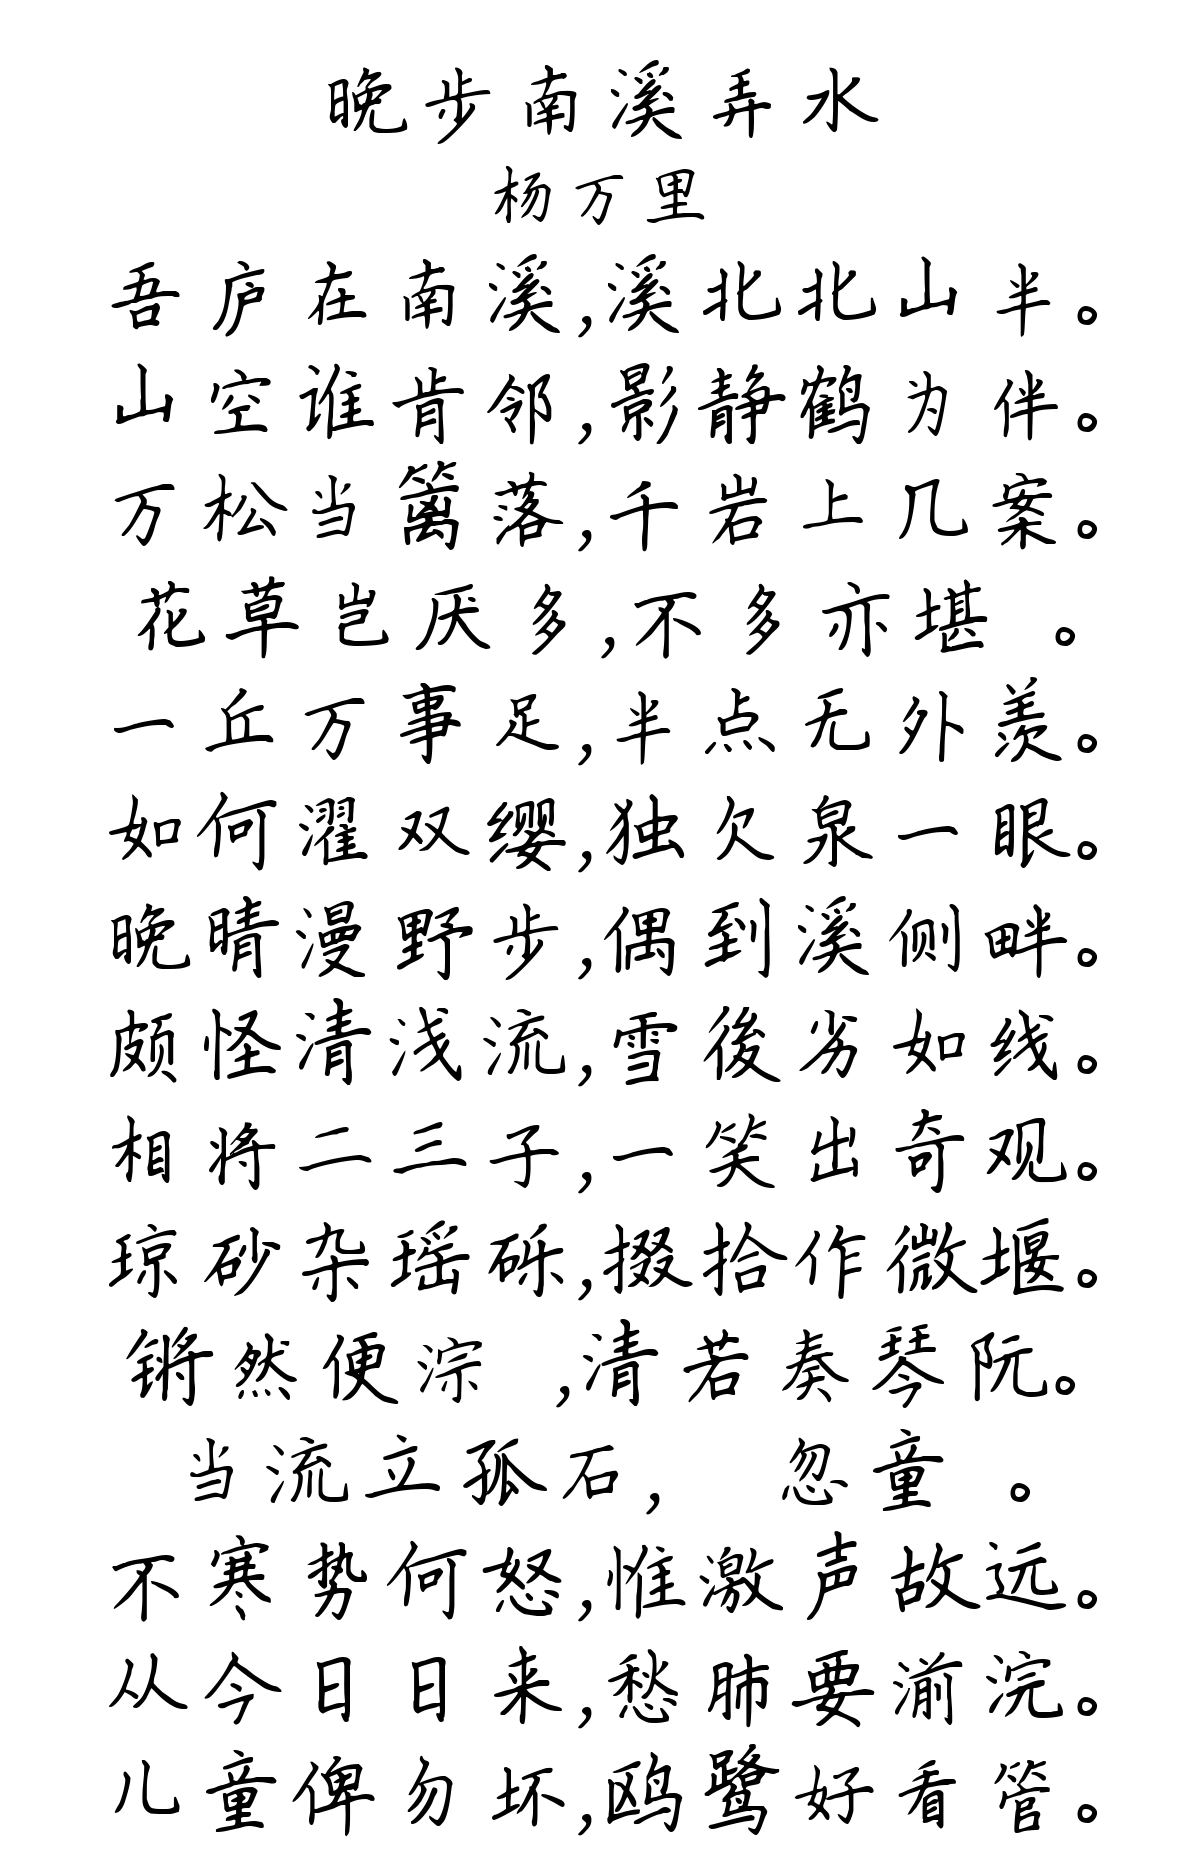 晚步南溪弄水
杨万里
吾庐在南溪,溪北北山半。
山空谁肯邻,影静鹤为伴。
万松当篱落,千岩上几案。
花草岂厌多,不多亦堪 。
一丘万事足,半点无外羡。
如何濯双缨,独欠泉一眼。
晚晴漫野步,偶到溪侧畔。
颇怪清浅流,雪後劣如线。
相将二三子,一笑出奇观。
琼砂杂瑶砾,掇拾作微堰。
锵然便淙 ,清若奏琴阮。
当流立孤石, 忽童 。
不寒势何怒,惟激声故远。
从今日日来,愁肺要湔浣。
儿童俾勿坏,鸥鹭好看管。